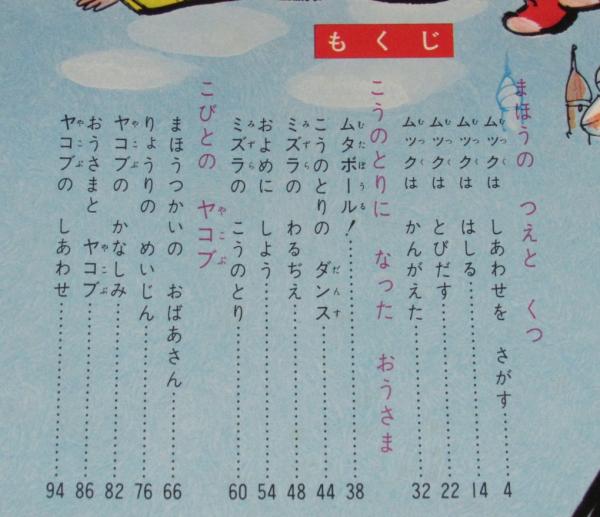 もくじ
まほうの つえと くつ
ムックは しあわせを さがす 4
ムックは はしる 14
ムックは とびだす 22
ムックは かんがえた 32
こうのとりに なった おうさま
ムタボール! 38
こうのとりの ダンス 44
ミズラの わるぢえ 48
およめに しよう 54
ミズラの こうのとり 60
こびとの ヤコブ
まほうつかいの おばあさん 66
りょうりの めいじん 76
ヤコブの かなしみ 82
おうさまと ヤコブ 86
ヤコブの しあわせ 94